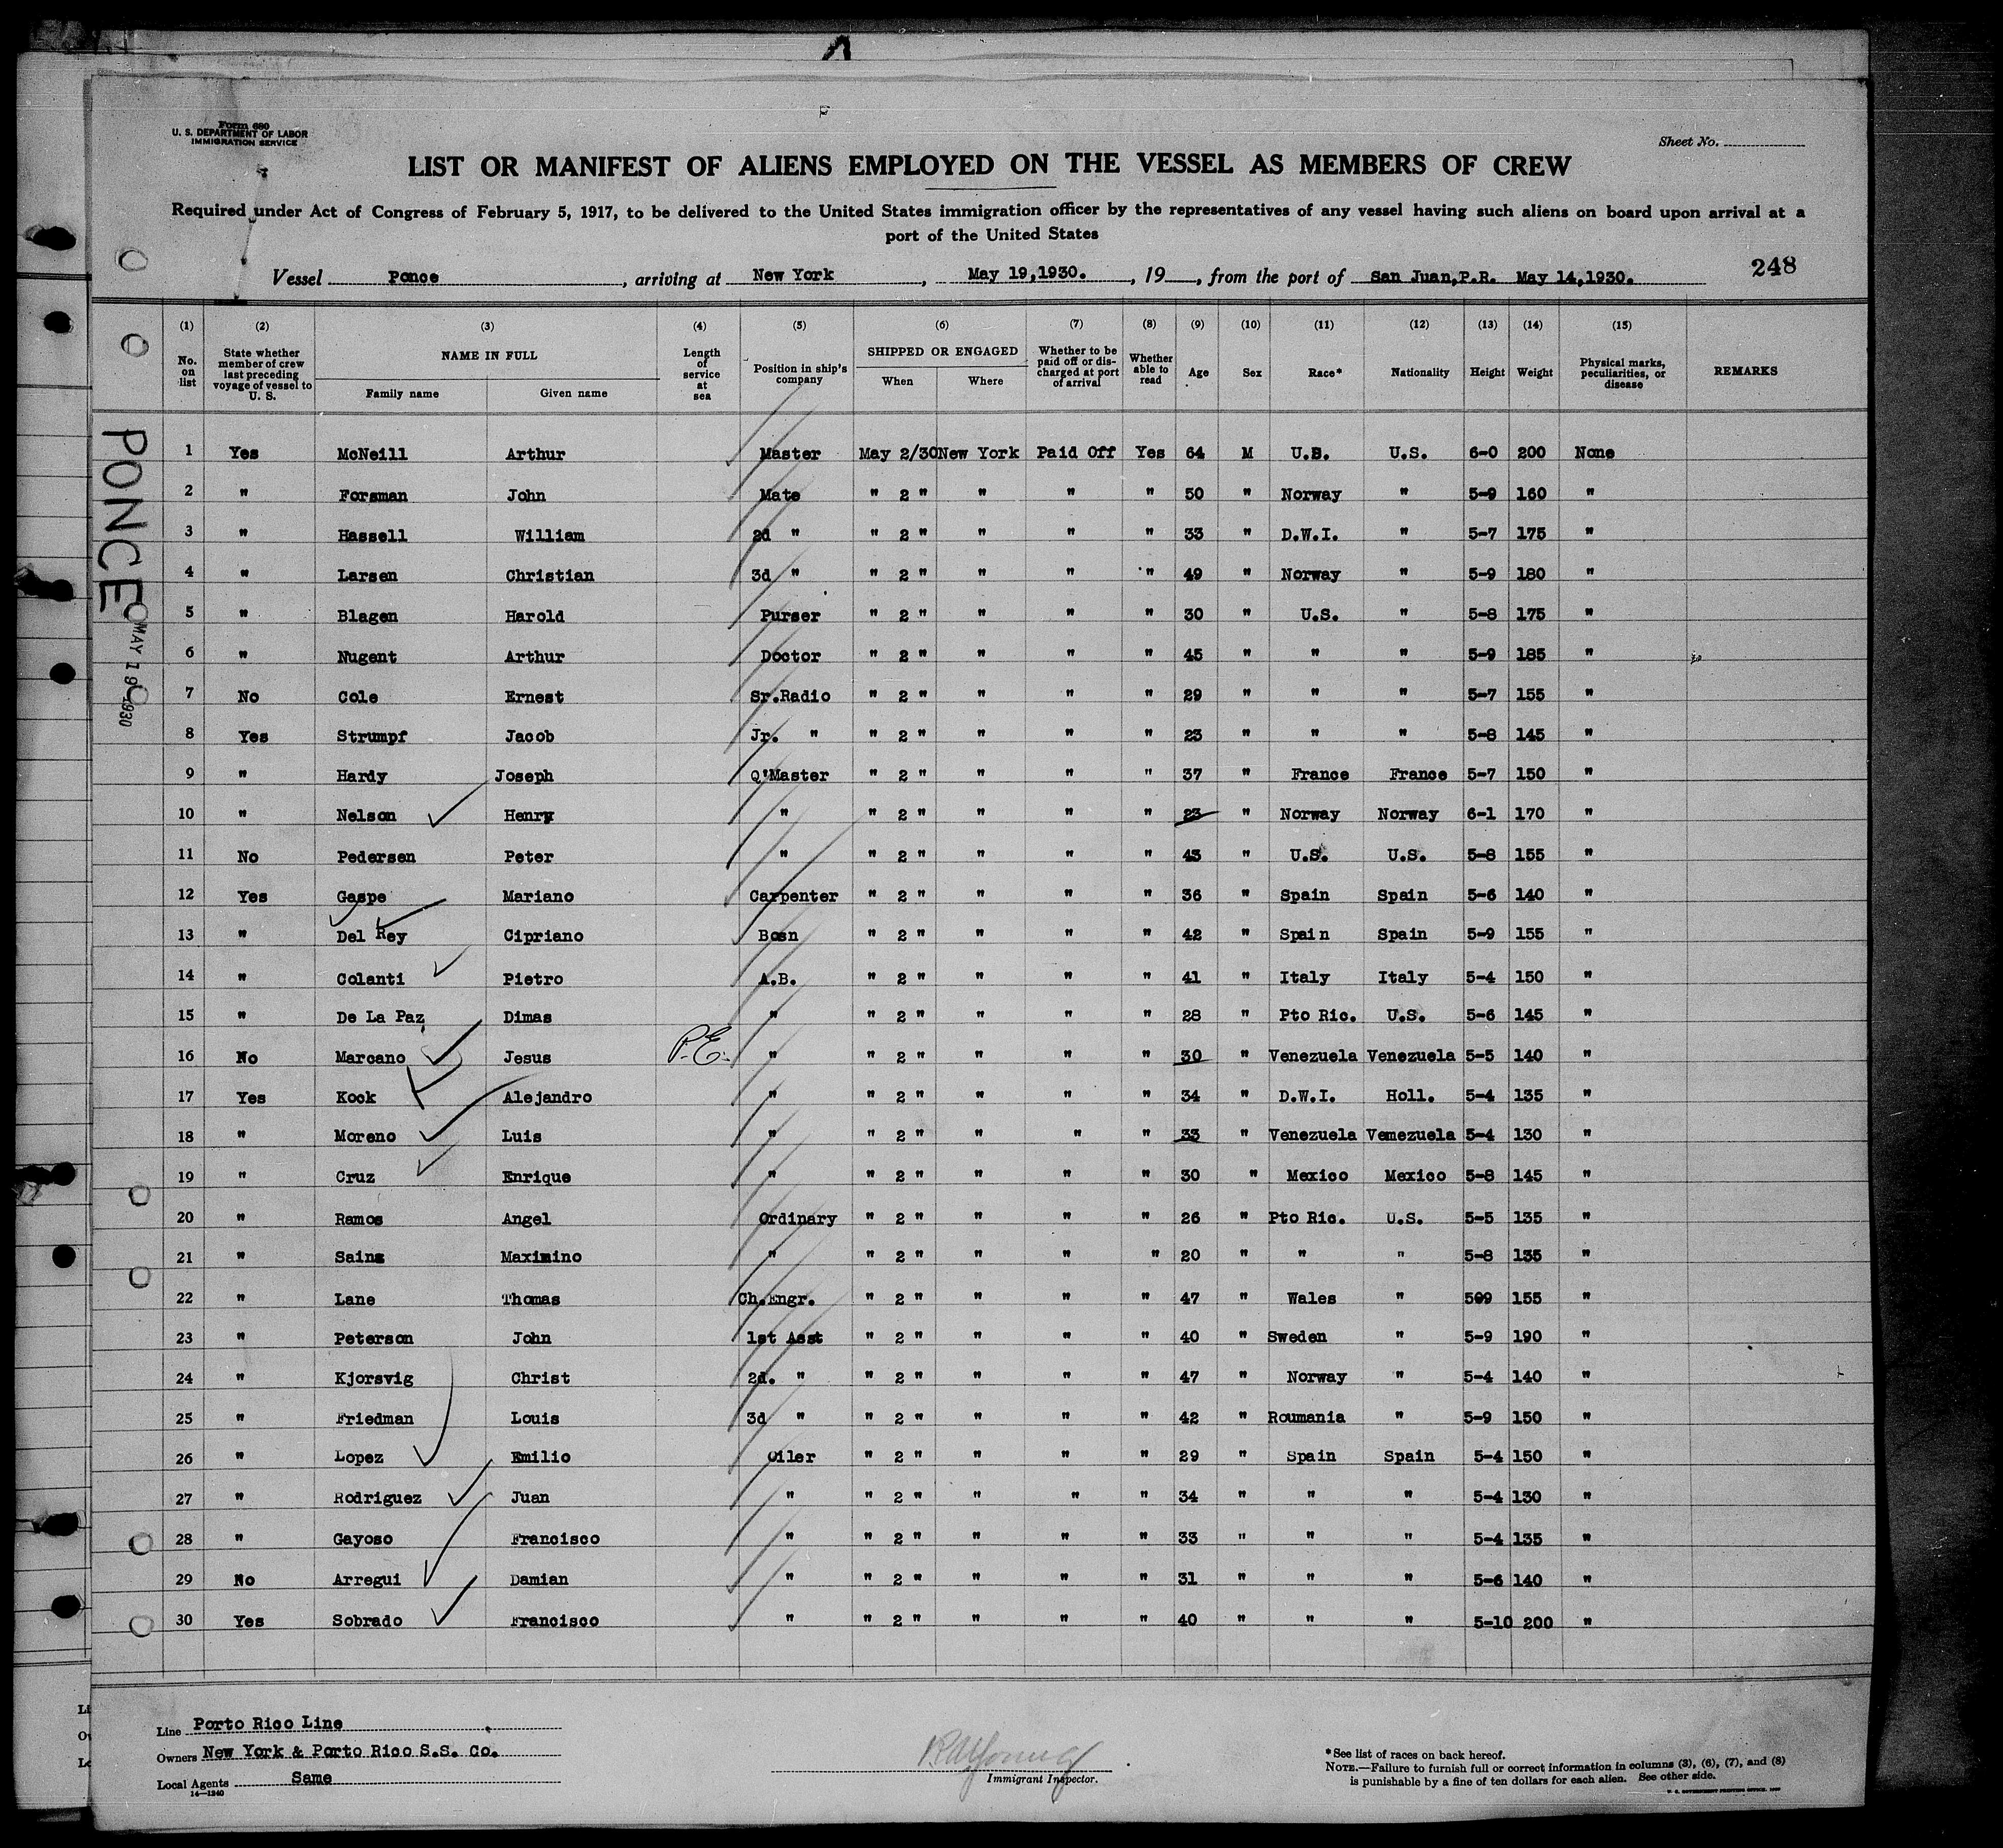 Form 680
U. S. DEPARTMENT OF LABOR
IMMIGRATION SERVICE
Sheet No.
LIST OR MANIFEST OF ALIENS EMPLOYED ON THE VESSEL AS MEMBERS OF CREW
Required under Act of Congress of February 5, 1917, to be delivered to the United States immigration officer by the representatives of any vessel having such aliens on board upon arrival at a
port of the United States
248
Vessel Ponce, arriving at New York, May 19,1930., 19, from the port of San Juan,P.R. May 14,1930.
(1) (2) (3) (4) (5) (6) (7) (8) (9) (10) (11) (12) (13) (14) (15)
No. on list State whether member of crew last preceding voyage of vessel to U. S. NAME IN FULL Family name Given name Length of service at sea Position in ship's company SHIPPED OR ENGAGED When Where Whether to be paid off or discharged at port of arrival Whether able to read Age Sex Race* Nationality Height Weight Physical marks, peculiarities, or disease REMARKS
PONCE
MAY 19 1930
1 Yes McNeill Arthur Master May 2/30 New York Paid Off Yes 64 M U.S. U.S. 6-0 200 None
2 " Forsman John Mate " 2 " " " " 50 " Norway " 5-9 160 "
3 " Hassell William 2d " " 2 " " " " 33 " D.W.I. " 5-7 175 "
4 " Larsen Christian 3d " " 2 " " " " 49 " Norway " 5-9 180 "
5 " Blagen Harold Purser " 2 " " " " 30 " U.S. " 5-8 175 "
6 " Nugent Arthur Doctor " 2 " " " " 45 " " " 5-9 185 "
7 No Cole Ernest Sr.Radio " 2 " " " " 29 " " " 5-7 155 "
8 Yes Strumpf Jacob Jr. " " 2 " " " " 23 " " " 5-8 145 "
9 " Hardy Joseph Q'Master " 2 " " " " 37 " France France 5-7 150 "
10 " Nelson Henry " " 2 " " " " 23 " Norway Norway 6-1 170 "
11 No Pedersen Peter " " 2 " " " " 43 " U.S. U.S. 5-8 155 "
12 Yes Gaspe Mariano Carpenter " 2 " " " " 36 " Spain Spain 5-6 140 "
13 " Del Rey Cipriano Bosn " 2 " " " " 42 " Spain Spain 5-9 155 "
14 " Colanti Pietro A.B. " 2 " " " " 41 " Italy Italy 5-4 150 "
15 " De La Paz Dimas " " 2 " " " " 28 " Pto Ric. U.S. 5-6 145 "
16 No Marcano Jesus P.E. " " 2 " " " " 30 " Venezuela Venezuela 5-5 140 "
17 Yes Kock Alejandro " " 2 " " " " 34 " D.W.I. Holl. 5-4 135 "
18 " Moreno Luis " " 2 " " " " 33 " Venezuela Venezuela 5-4 130 "
19 " Cruz Enrique " " 2 " " " " 30 " Mexico Mexico 5-8 145 "
20 " Ramos Angel Ordinary " 2 " " " " 26 " Pto Ric. U.S. 5-5 135 "
21 " Sains Maximino " " 2 " " " " 20 " " " 5-8 135 "
22 " Lane Thomas Ch.Engr. " 2 " " " " 47 " Wales " 509 155 "
23 " Peterson John 1st Asst " 2 " " " " 40 " Sweden " 5-9 190 "
24 " Kjorsvig Christ 2d. " " 2 " " " " 47 " Norway " 5-4 140 "
25 " Friedman Louis 3d " " 2 " " " " 42 " Roumania " 5-9 150 "
26 " Lopez Emilio Oiler " 2 " " " " 29 " Spain Spain 5-4 150 "
27 " Rodriguez Juan " " 2 " " " " 34 " " " 5-4 130 "
28 " Gayoso Francisco " " 2 " " " " 33 " " " 5-4 135 "
29 No Arregui Damian " " 2 " " " " 31 " " " 5-6 140 "
30 Yes Sobrado Francisco " " 2 " " " " 40 " " " 5-10 200 "
Line Porto Rico Line
Owners New York & Porto Rico S.S. Co.
Local Agents Same
14—1240
Immigrant Inspector.
*See list of races on back hereof.
NOTE.—Failure to furnish full or correct information in columns (3), (6), (7), and (8)
is punishable by a fine of ten dollars for each alien. See other side.
U. S. GOVERNMENT PRINTING OFFICE